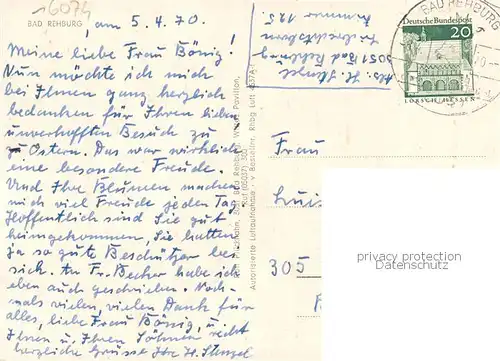 16074
BAD REHBURG, am 5.4.70.
Meine liebe Frau Bönig!
Nun möchte ich mich
bei Ihnen ganz herzlich
bedanken für Ihren lieben
unverhofften Besuch zu
Ostern. Das war wirklich
eine besondere Freude.
Und Ihre Blumen machen
mich viel Freude jeden Tag.
Hoffentlich sind Sie gut
heimgekommen, Sie hatten
ja so gute Beschützer bei
sich. An Fr. Becher habe ich
eben auch geschrieben. Noch-
mals vielen, vielen Dank für
alles, liebe Frau Bönig, u.
Ihnen u. Ihren Söhnen recht
herzliche Grüsse Ihr H. Stengel
Abs. H. Stengel
3051 Bad Rehburg
Zimmer 125
Pavillon,
Autorisierte Luftaufnahme
BAD REHBURG
Deutsche Bundespost
20
LORSCH/HESSEN
Frau
Luis
305
privacy protection
Datenschutz